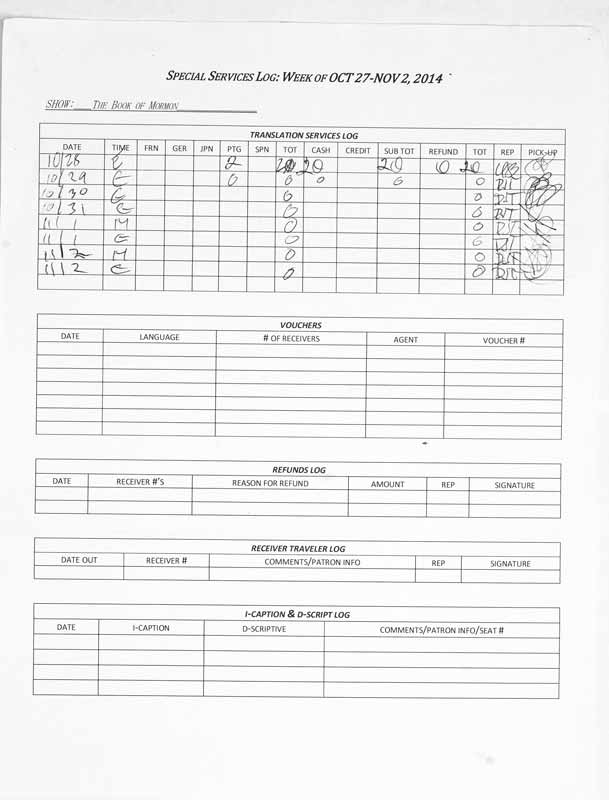 SPECIAL SERVICES LOG: WEEK OF OCT 27-NOV 2, 2014
SHOW: THE BOOK OF MORMON
TRANSLATION SERVICES LOG
DATE TIME FRN GER JPN PTG SPN TOT CASH CREDIT SUB TOT REFUND TOT REP PICK-UP
10/28 E 2 20 20 0 20
10/29 E 0 0 0 0 0 DJT
10/30 E 0 0 DJT
10/31 E 0 0 DJT
11/1 M 0 0 DJT
11/1 E 0 0 DJT
11/2 M 0 0 DJT
11/2 E 0 0 DJT
VOUCHERS
DATE LANGUAGE # OF RECEIVERS AGENT VOUCHER #
REFUNDS LOG
DATE RECEIVER #'S REASON FOR REFUND AMOUNT REP SIGNATURE
RECEIVER TRAVELER LOG
DATE OUT RECEIVER # COMMENTS/PATRON INFO REP SIGNATURE
I-CAPTION & D-SCRIPT LOG
DATE I-CAPTION D-SCRIPTIVE COMMENTS/PATRON INFO/SEAT #